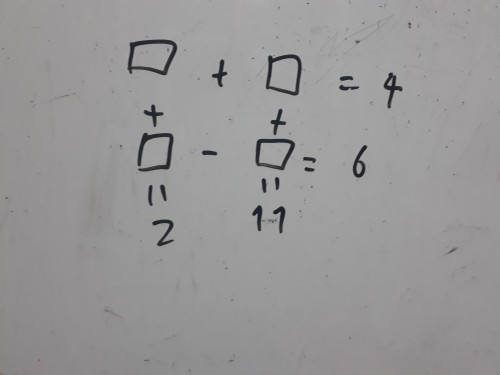 □ + □ = 4
+ +
□ - □ = 6
= =
2 11